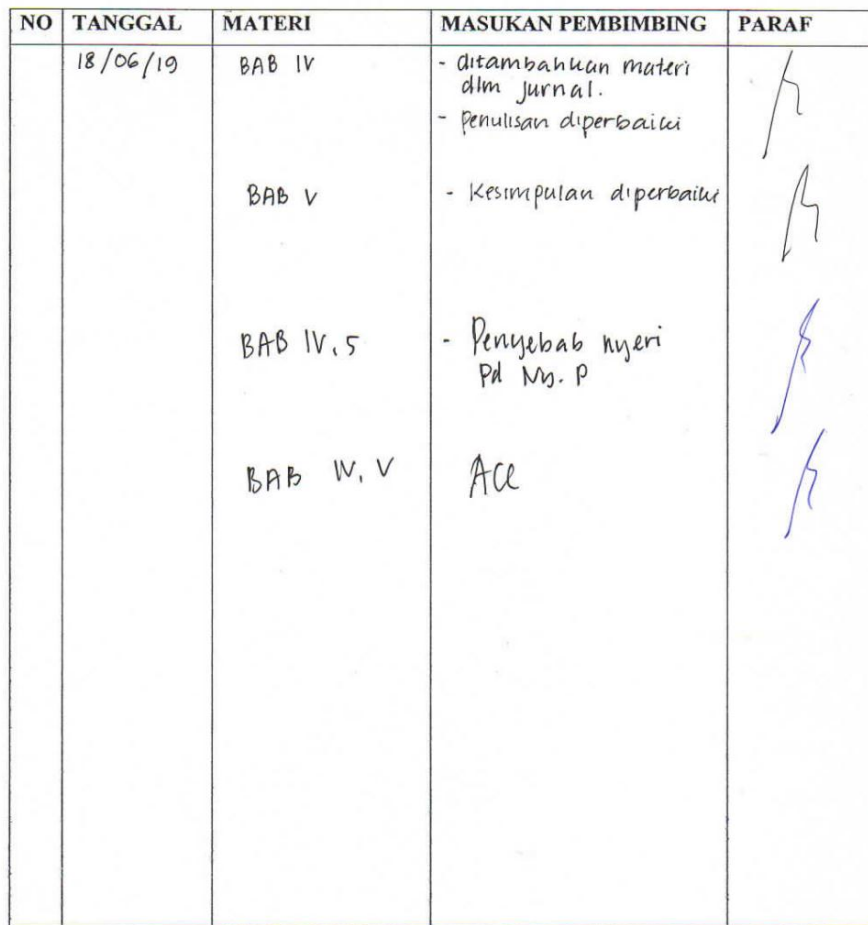 NO TANGGAL MATERI MASUKAN PEMBIMBING PARAF
18/06/19 BAB IV - ditambahkan materi
dlm jurnal.
- Penulisan diperbaiki
BAB V - Kesimpulan diperbaiki
BAB IV, 5 - Penyebab nyeri
Pd Ny. P
BAB IV, V Acc